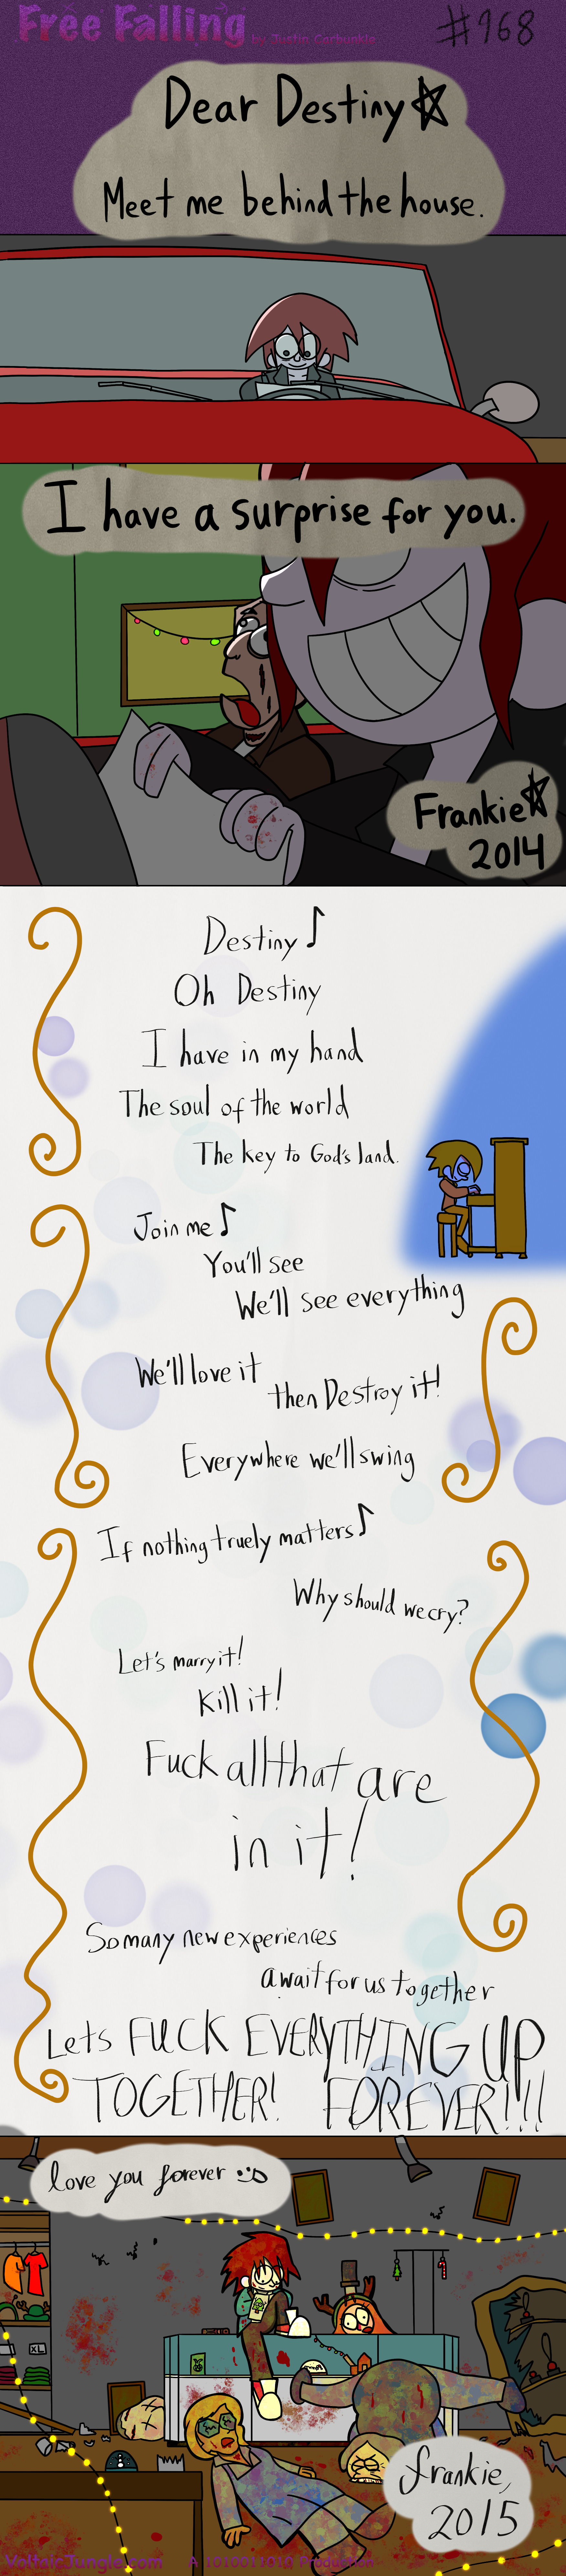 Free Falling by Justin Carbunkle
#168
Dear Destiny
Meet me behind the house.
I have a surprise for you.
Frankie
2014
Destiny
Oh Destiny
I have in my hand
The soul of the world
The key to God's land.
Join me
You'll see
We'll see everything
We'll love it
then Destroy it!
Everywhere we'll swing
If nothing truely matters
Why should we cry?
Let's marry it!
Kill it!
Fuck all that are
in it!
So many new experiences
await for us together
Lets FUCK EVERYTHING UP
TOGETHER! FOREVER!!!
love you forever :D
XL
frankie,
2015
VoltainJungle.com